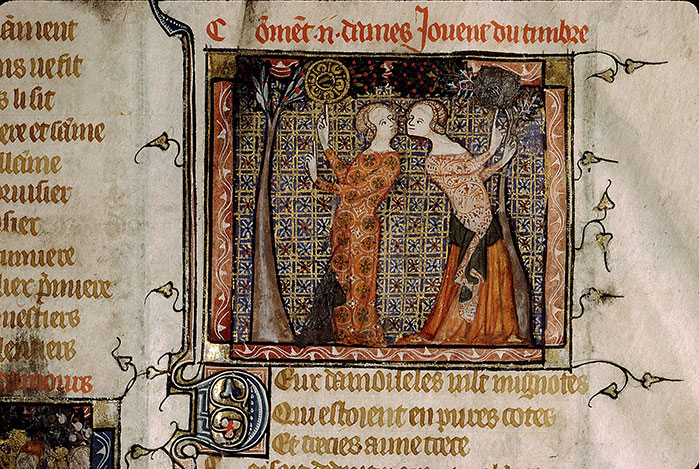 âment
ns uesit
s lisit
ere et sâme
llâme
bruisier
sier
umiere
lier p̃miere
mestiers
lentiers
amours
Cõmẽt .ii. dames Jouent du timbre
Deux damoiseles mlt mignotes
Qui estoient en pures cotes
Et trecies a une trece